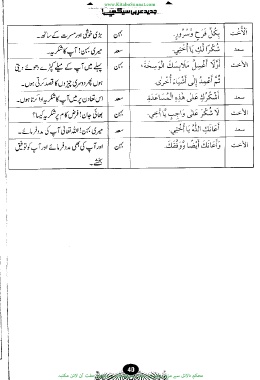 www.KitaboSunnat.com
جدید عربی سیکھیے!
الأخت بِكُلِّ فَرَحٍ وَّسُرُورٍ. بہن بڑی خوشی اور مسرت کے ساتھ۔
سعد شُكْرًا لَكِ يَا أُخْتِي. سعد میری بہن! آپ کا شکریہ۔
الأخت أَوَّلًا أَغْسِلُ مَلَابِسَكَ الْوَسِخَةَ، بہن پہلے میں آپ کے میلے کپڑے دھوئے دیتی
ثُمَّ أَعْمِدُ إِلَى أَشْيَاءَ أُخْرَى. ہوں پھر دوسری چیزوں کا قصد کرتی ہوں۔
سعد أَشْكُرُكِ عَلَى هَذِهِ الْمُسَاعَدَةِ سعد اس تعاون پر میں آپ کا شکریہ ادا کرتا ہوں۔
الأخت لَا شُكْرَ عَلَى وَاجِبٍ يَا أَخِي. بہن بھائی جان! فرض کام پر شکریہ کیسا؟
سعد أَعَانَكِ اللَّهُ يَا أُخْتِي. سعد میری بہن! اللہ تعالیٰ آپ کی مدد فرمائے۔
الأخت وَأَعَانَكَ أَيْضًا وَوَفَّقَكَ. بہن اور آپ کی بھی مدد فرمائے اور آپ کو توفیق
بخشے۔
40
محکم دلائل سے مزین
مفت آن لائن مکتبہ